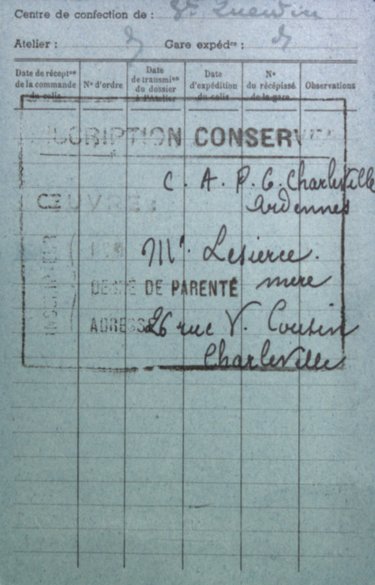 Centre de confection de : St Quentin
Atelier : Gare expédre :
Date de récepton de la commande du colis
N° d'ordre
Date de transmion du dossier à l'Atelier
Date d'expédition du colis
N° du récépissé de la gare
Observations
SCRIPTION CONSERV
C. A. P. G. Charleville
Ardennes
ŒUVRE :
Me
DEGRÉ DE PARENTÉ mère
ADRESSE 26 rue V. Cousin
Charleville